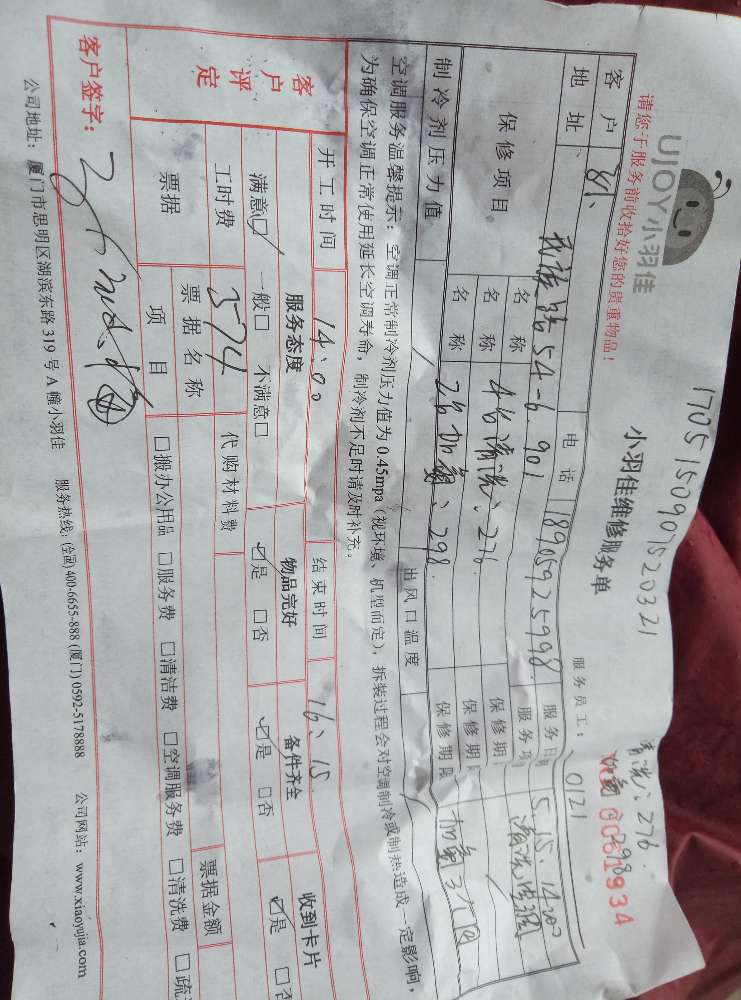 1705150907520321
请您于服务前收拾好您的贵重物品！
UJOY小羽佳
小羽佳维修服务单
服务员工： 0121
清洗：276
加氨：298
0061934
客户
电话 18905925998
服务日
5.15. 14:00
地址 民族路54-6.901
服务项
保修项目
名称 4台清洗：276
保修期
名称 2台加氨：298
保修期限 加氨3个月
制冷剂压力值
出风口温度
空调服务温馨提示：空调正常制冷剂压力值为0.45mpa（视环境、机型而定），拆装过程会对空调制冷或制热造成一定影响，
为确保空调正常使用延长空调寿命，制冷剂不足时请及时补充。
客户评定
开工时间 14:00 结束时间 16:15
服务态度 物品完好 备件齐全 收到卡片
满意☑ 一般□ 不满意□ ☑是 □否 ☑是 □否 ☑是
工时费 574 代购材料费
票据 票据名称 票据金额
项目 □搬办公用品 □服务费 □清洁费 □空调服务费 □清洗费
客户签字：
公司地址：厦门市思明区湖滨东路319号A幢小羽佳 服务热线：(全国)400-6655-888 (厦门)0592-5178888 公司网站：www.xiaoyujia.com